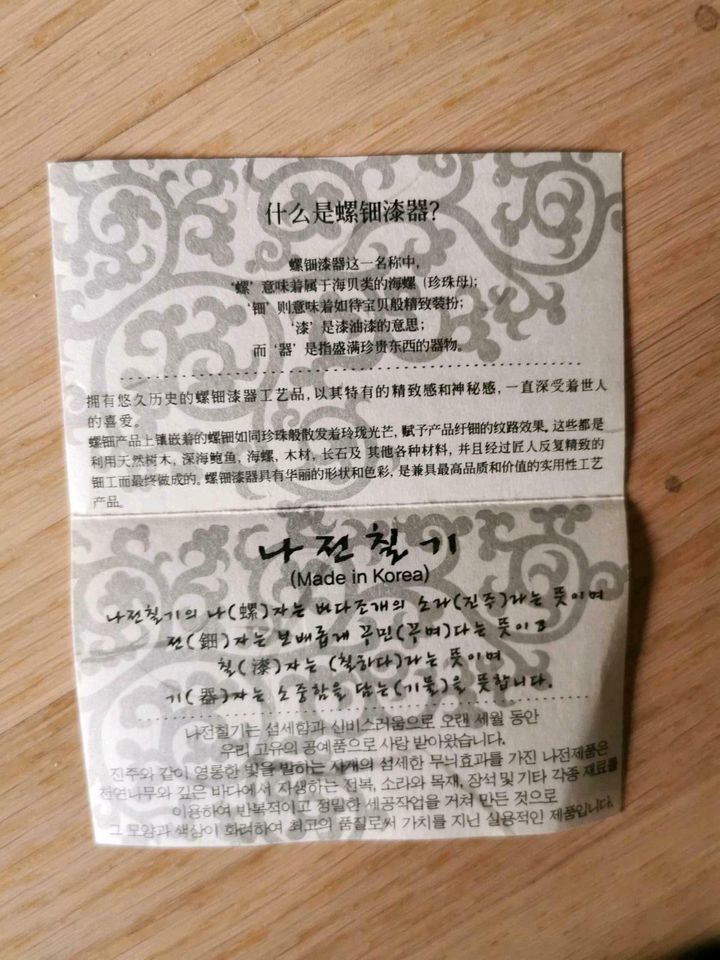 什么是螺钿漆器?
螺钿漆器这一名称中,
'螺' 意味着属于海贝类的海螺 (珍珠母);
'钿' 则意味着如待宝贝般精致装扮;
'漆' 是漆油漆的意思;
而 '器' 是指盛满珍贵东西的器物。
拥有悠久历史的螺钿漆器工艺品, 以其特有的精致感和神秘感, 一直深受着世人
的喜爱。
螺钿产品上镶嵌着的螺钿如同珍珠般散发着玲珑光芒, 赋予产品纤钿的纹路效果, 这些都是
利用天然树木, 深海鲍鱼, 海螺, 木材, 长石及 其他各种材料, 并且经过匠人反复精致的
钿工而最终做成的。螺钿漆器具有华丽的形状和色彩, 是兼具最高品质和价值的实用性工艺
产品。
나전칠기
(Made in Korea)
나전칠기의 나(螺)자는 바다조개의 소라(진주)라는 뜻이며
전(鈿)자는 보배롭게 꾸민(꾸며)다는 뜻이고
칠(漆)자는 (칠하다)라는 뜻이며
기(器)자는 소중함을 담는(기물)을 뜻합니다.
나전칠기는 섬세함과 신비스러움으로 오랜 세월 동안
우리 고유의 공예품으로 사랑 받아왔습니다.
진주와 같이 영롱한 빛을 발하는 자개의 섬세한 무늬효과를 가진 나전제품은
천연나무와 깊은 바다에서 자생하는 전복, 소라와 목재, 장석 및 기타 각종 재료를
이용하여 반복적이고 정밀한 세공작업을 거쳐 만든 것으로
그 모양과 색상이 화려하여 최고의 품질로써 가치를 지닌 실용적인 제품입니다.